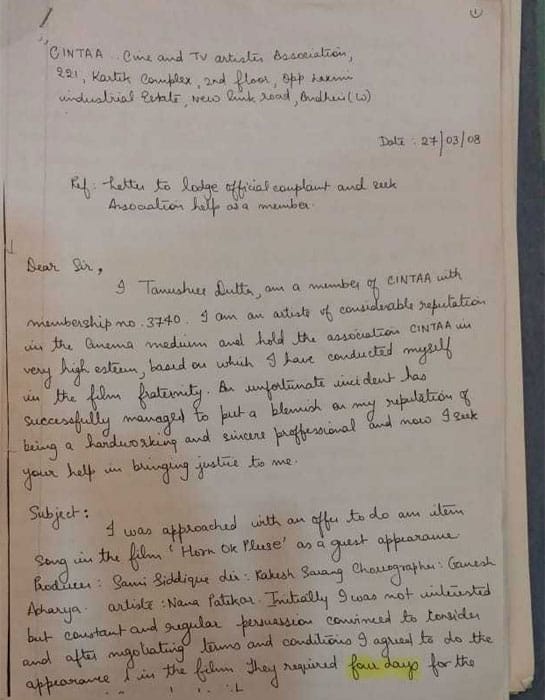 1
CINTAA .. Cine and TV artistes Association,
221, Kartik Complex, 2nd floor, Opp Laxmi
industrial Estate, New link road, Andheri (W)
Date : 27/03/08
Ref :- Letter to lodge official complaint and seek
Association help as a member.
Dear Sir,
I Tanushree Dutta, am a member of CINTAA with
membership no. 3740. I am an artiste of considerable reputation
in the Cinema medium and hold the association CINTAA in
very high esteem, based on which I have conducted myself
in the film fraternity. An unfortunate incident has
successfully managed to put a blemish on my reputation of
being a hardworking and sincere proffessional and now I seek
your help in bringing justice to me.
Subject :
I was approached with an offer to do an item
song in the film 'Horn Ok Please' as a guest appearance
Producer : Sami Siddique dir : Rakesh Sarang Choreographer : Ganesh
Acharya. artiste : Nana Patekar. Initially I was not interested
but constant and regular persuasion convinced to consider
and after negotiating terms and conditions I agreed to do the
appearance in the film. They required four days for the